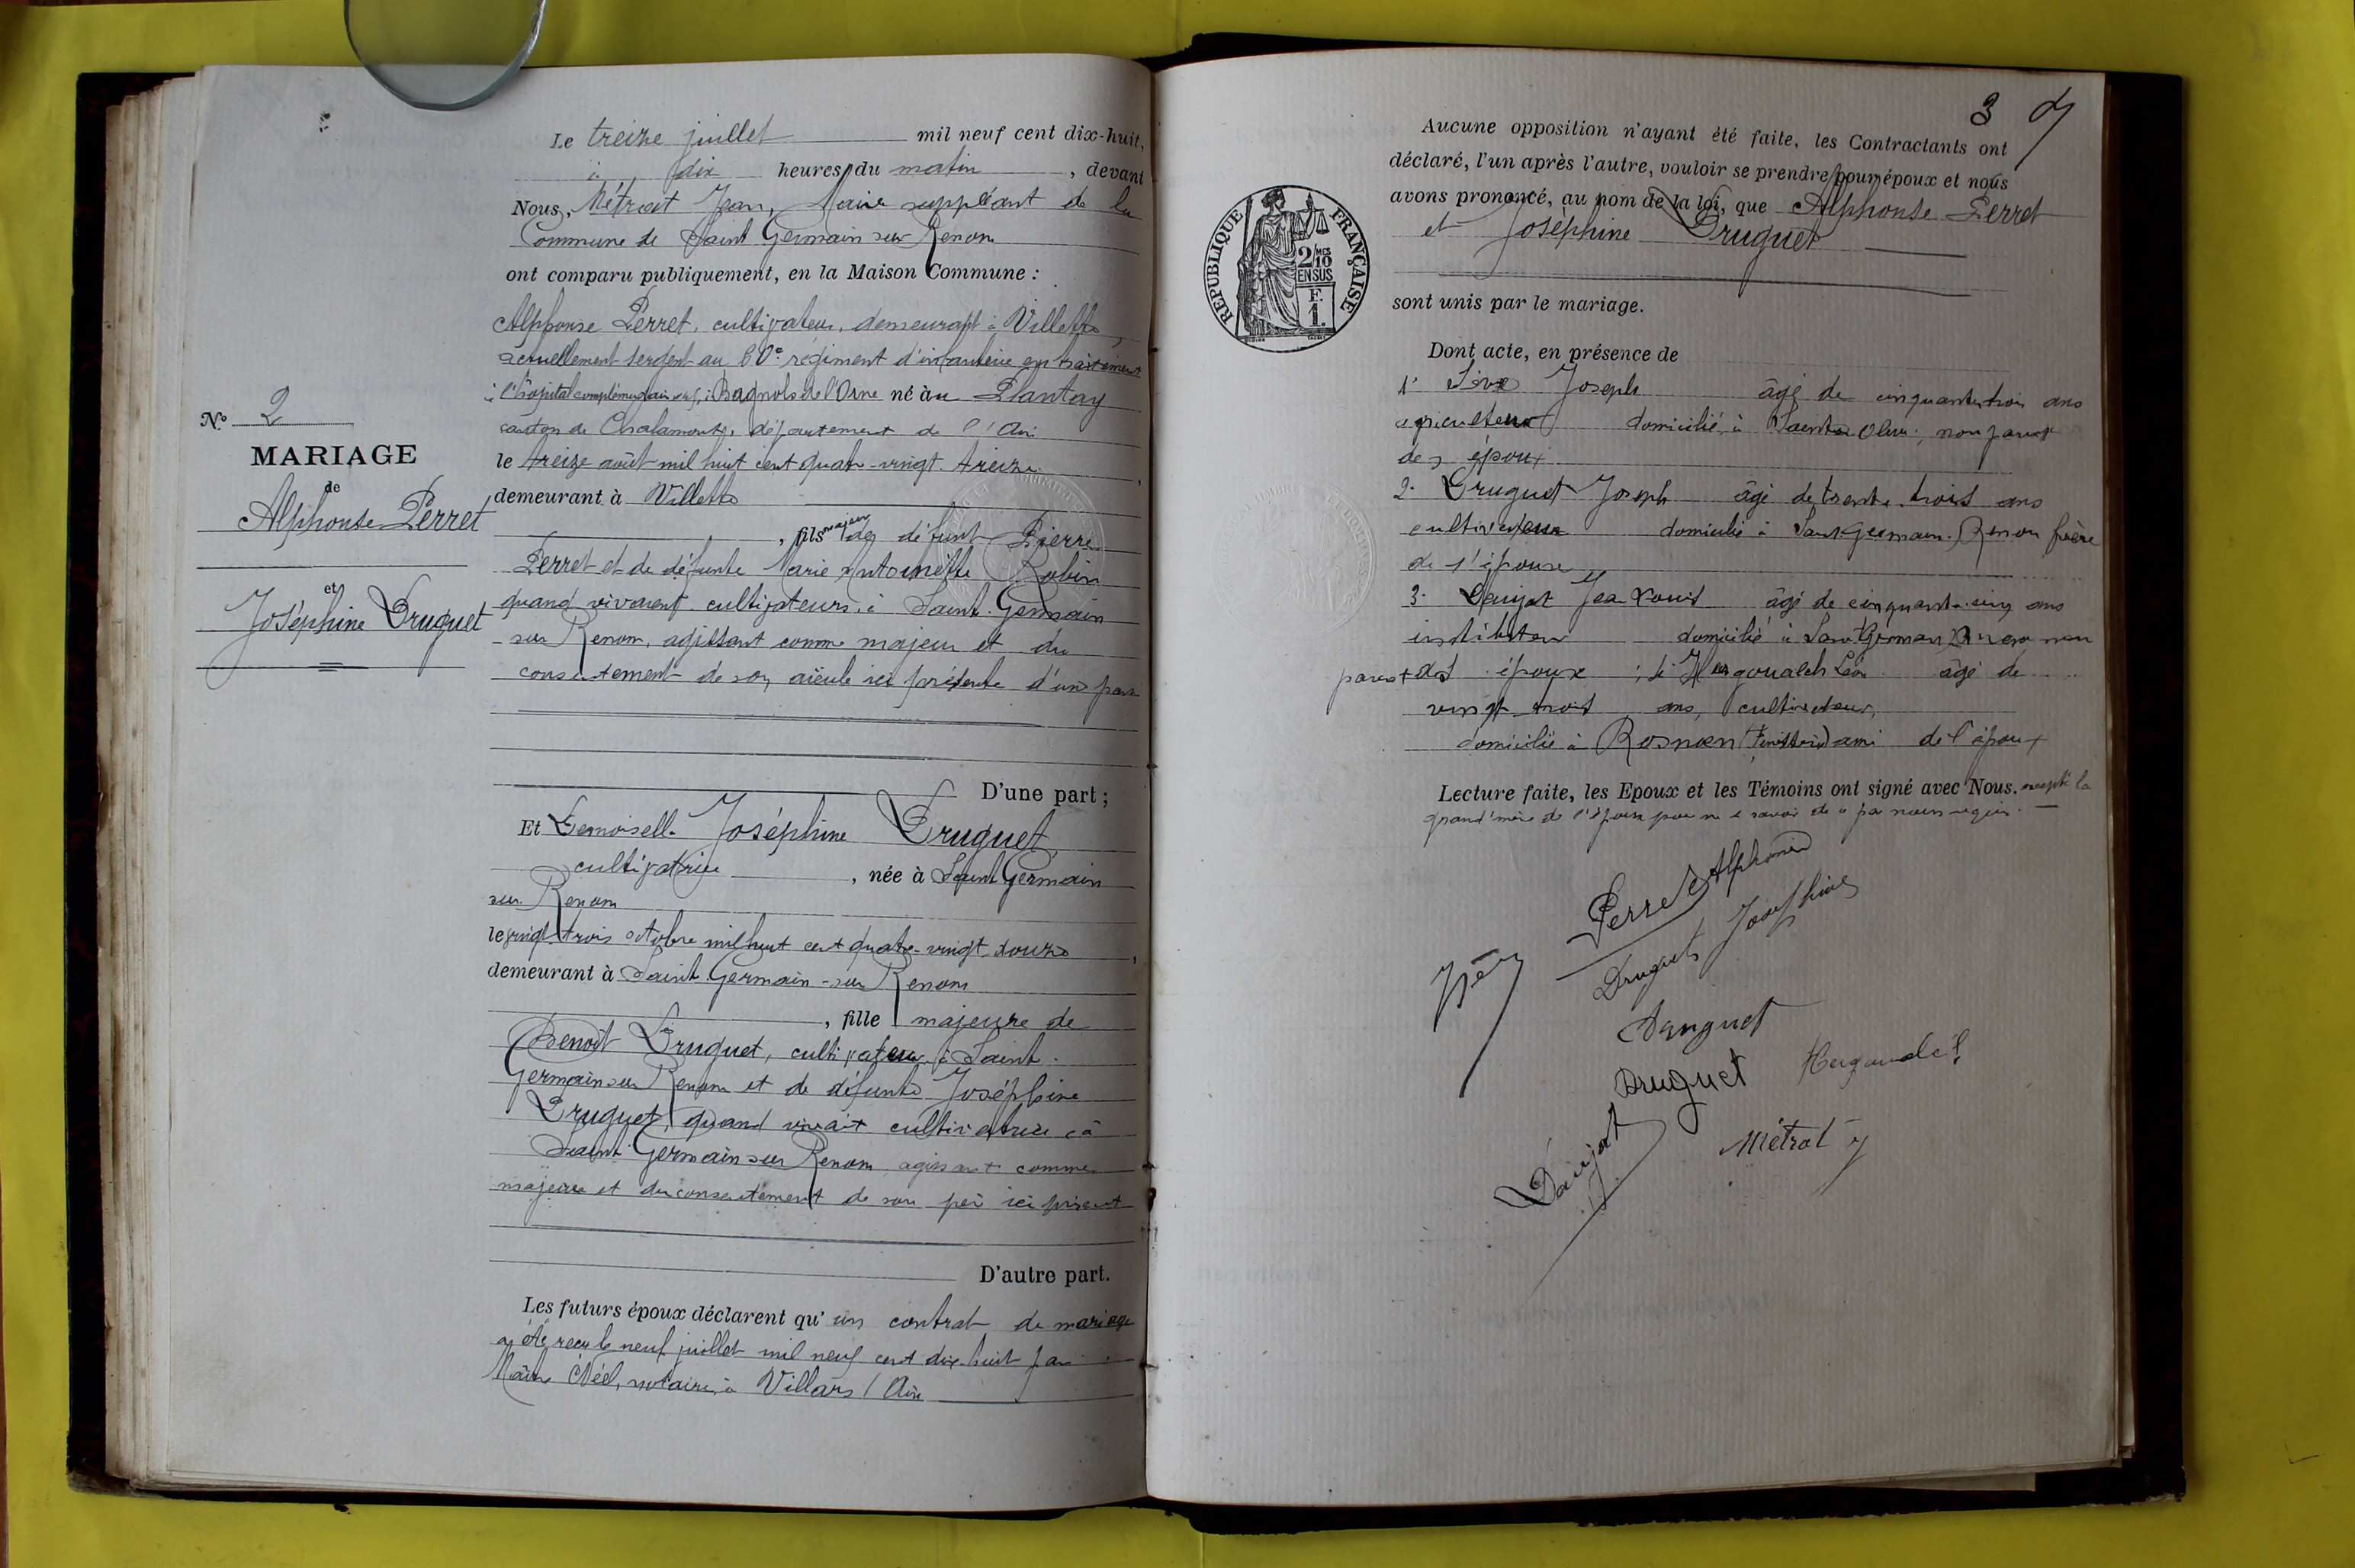 Le treize juillet mil neuf cent dix-huit,
à dix heures du matin, devant
Nous, Métrat Jean, Maire suppléant de la
Commune de Saint Germain sur Renom
ont comparu publiquement, en la Maison Commune :
Alphonse Perret, cultivateur, demeurant à Villette,
actuellement sergent au 60e régiment d'infanterie en traitement
à l'hôpital complémentaire à Bagnols de l'Orne né à au Plantay
canton de Chalamont, département de l'Ain
le treize août mil huit cent quatre-vingt-treize
demeurant à Villette
, fils majeur de défunt Pierre
Perret et de défunte Marie Antoinette Robin
quand vivaient cultivateurs à Saint-Germain
sur Renom, agissant comme majeur et du
consentement de son aïeule ici présente d'une part
D'une part ;
N° 2
MARIAGE
de
Alphonse Perret
et
Joséphine Druguet
Et Demoiselle Joséphine Druguet,
cultivatrice, née à Saint Germain
sur Renom
le vingt-trois octobre mil huit cent quatre-vingt-douze,
demeurant à Saint Germain-sur Renom
, fille majeure de
Benoît Druguet, cultivateur à Saint-
Germain sur Renom et de défunte Joséphine
Druguet, quand vivait cultivatrice à
Saint Germain sur Renom agissant comme
majeure et du consentement de son père ici présent
D'autre part.
Les futurs époux déclarent qu'un contrat de mariage
a été reçu le neuf juillet mil neuf cent dix-huit par
Maître notaire à Villars (Ain
3
Aucune opposition n'ayant été faite, les Contractants ont
déclaré, l'un après l'autre, vouloir se prendre pour époux et nous
avons prononcé, au nom de la loi, que Alphonse Perret
et Joséphine Druguet
sont unis par le mariage.
REPUBLIQUE FRANÇAISE
2/10 EN SUS
F. 1.
Dont acte, en présence de
1° Joseph âgé de cinquante-trois ans
agriculteur domicilié à Sainte Olive, non parent
des époux
2. Druguet Joseph âgé de trente-trois ans
cultivateur domicilié à Saint Germain-Renom frère
de l'épouse
3. Daujat Jean Louis âgé de cinquante-cinq ans
instituteur domicilié à Saint Germain s/ Renom non
parent des époux ; 4° Hergoualch Léon âgé de
vingt-trois ans, cultivateur,
domicilié à Rosnoën (Finistère) ami de l'époux
Lecture faite, les Epoux et les Témoins ont signé avec Nous. excepté la
grand'mère de l'époux pour ne le savoir de ce par nous requis.
Perret Alphonse
Druguet Joséphine
Druguet
Druguet
Hergoualch
Daujat
Métrat